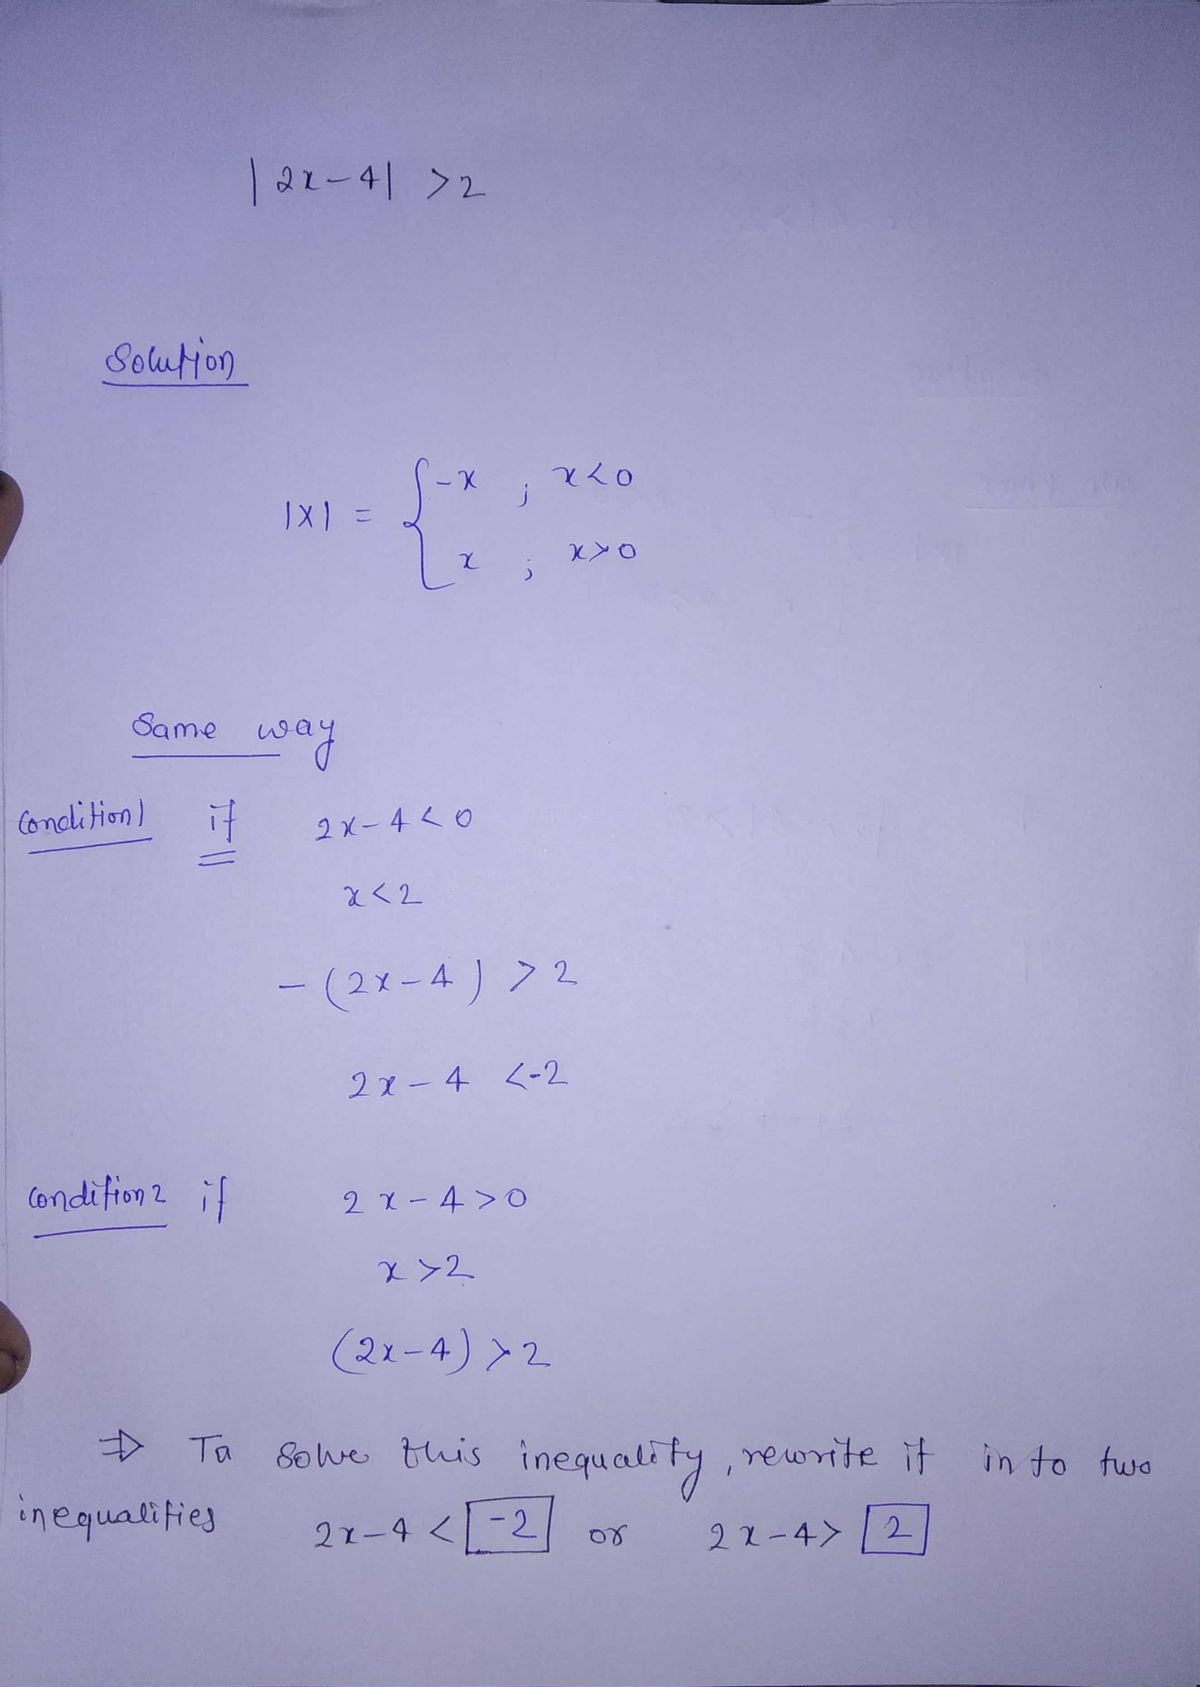 |2x-4| >2
Solution
|X| = { -x ; x<0
x ; x>0
Same way
Condition1 if 2x-4<0
x<2
-(2x-4) >2
2x-4 <-2
Condition2 if 2x-4>0
x>2
(2x-4)>2
⇒ To solve this inequality, rewrite it in to two
inequalities 2x-4 < -2 or 2x-4> 2